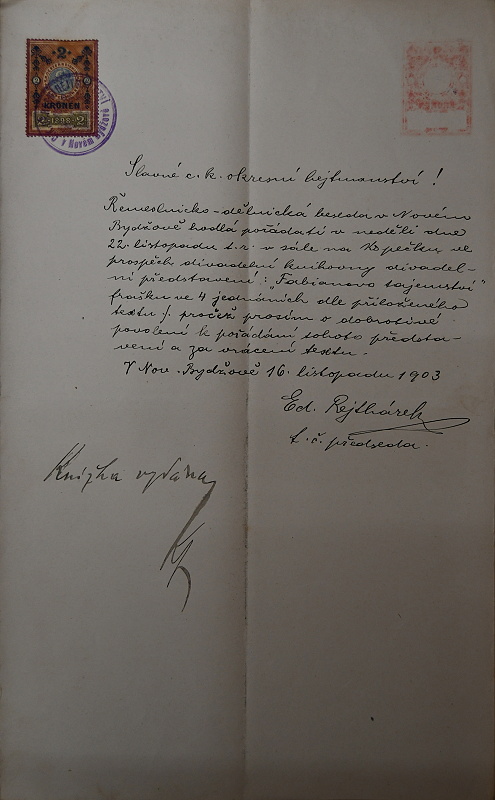 2 2
2 2
KRONEN
2 1898 2
v Novém Bydžově
Slavné c. k. okresní hejtmanství !
Řemeslnicko-dělnická beseda v Novém
Bydžově hodlá pořádati v neděli dne
22. listopadu t. r. v sále na Kopečku, ve
prospěch divadelní knihovny divadel-
ní představení: „Fabianovo tajemství"
frašku ve 4 jednáních dle přiloženého
textu /. pročež prosím o dobrotivé
povolení k pořádání tohoto předsta-
vení a za vrácení textu.
V Nov. Bydžově 16. listopadu 1903
Ed. Rejthárek
t. č. předseda.
Knížka vydána